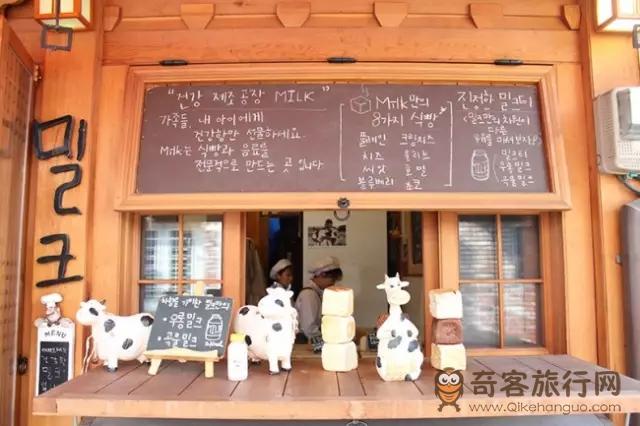 밀크
"건강 제조 공장 MILK"
가족들, 내 아이에게
건강함만 선물하세요.
Milk는 식빵과 음료를
전문적으로 만드는 곳 입니다
Milk만의
8가지 식빵
플레인 크림치즈
치즈 올리브
씨앗 호밀
블루베리 초코
진정한 밀크티
우유를
밀크티
곡물밀크
MENU
우롱밀크
곡물밀크
奇客旅行网
www.Qikehanguo.com